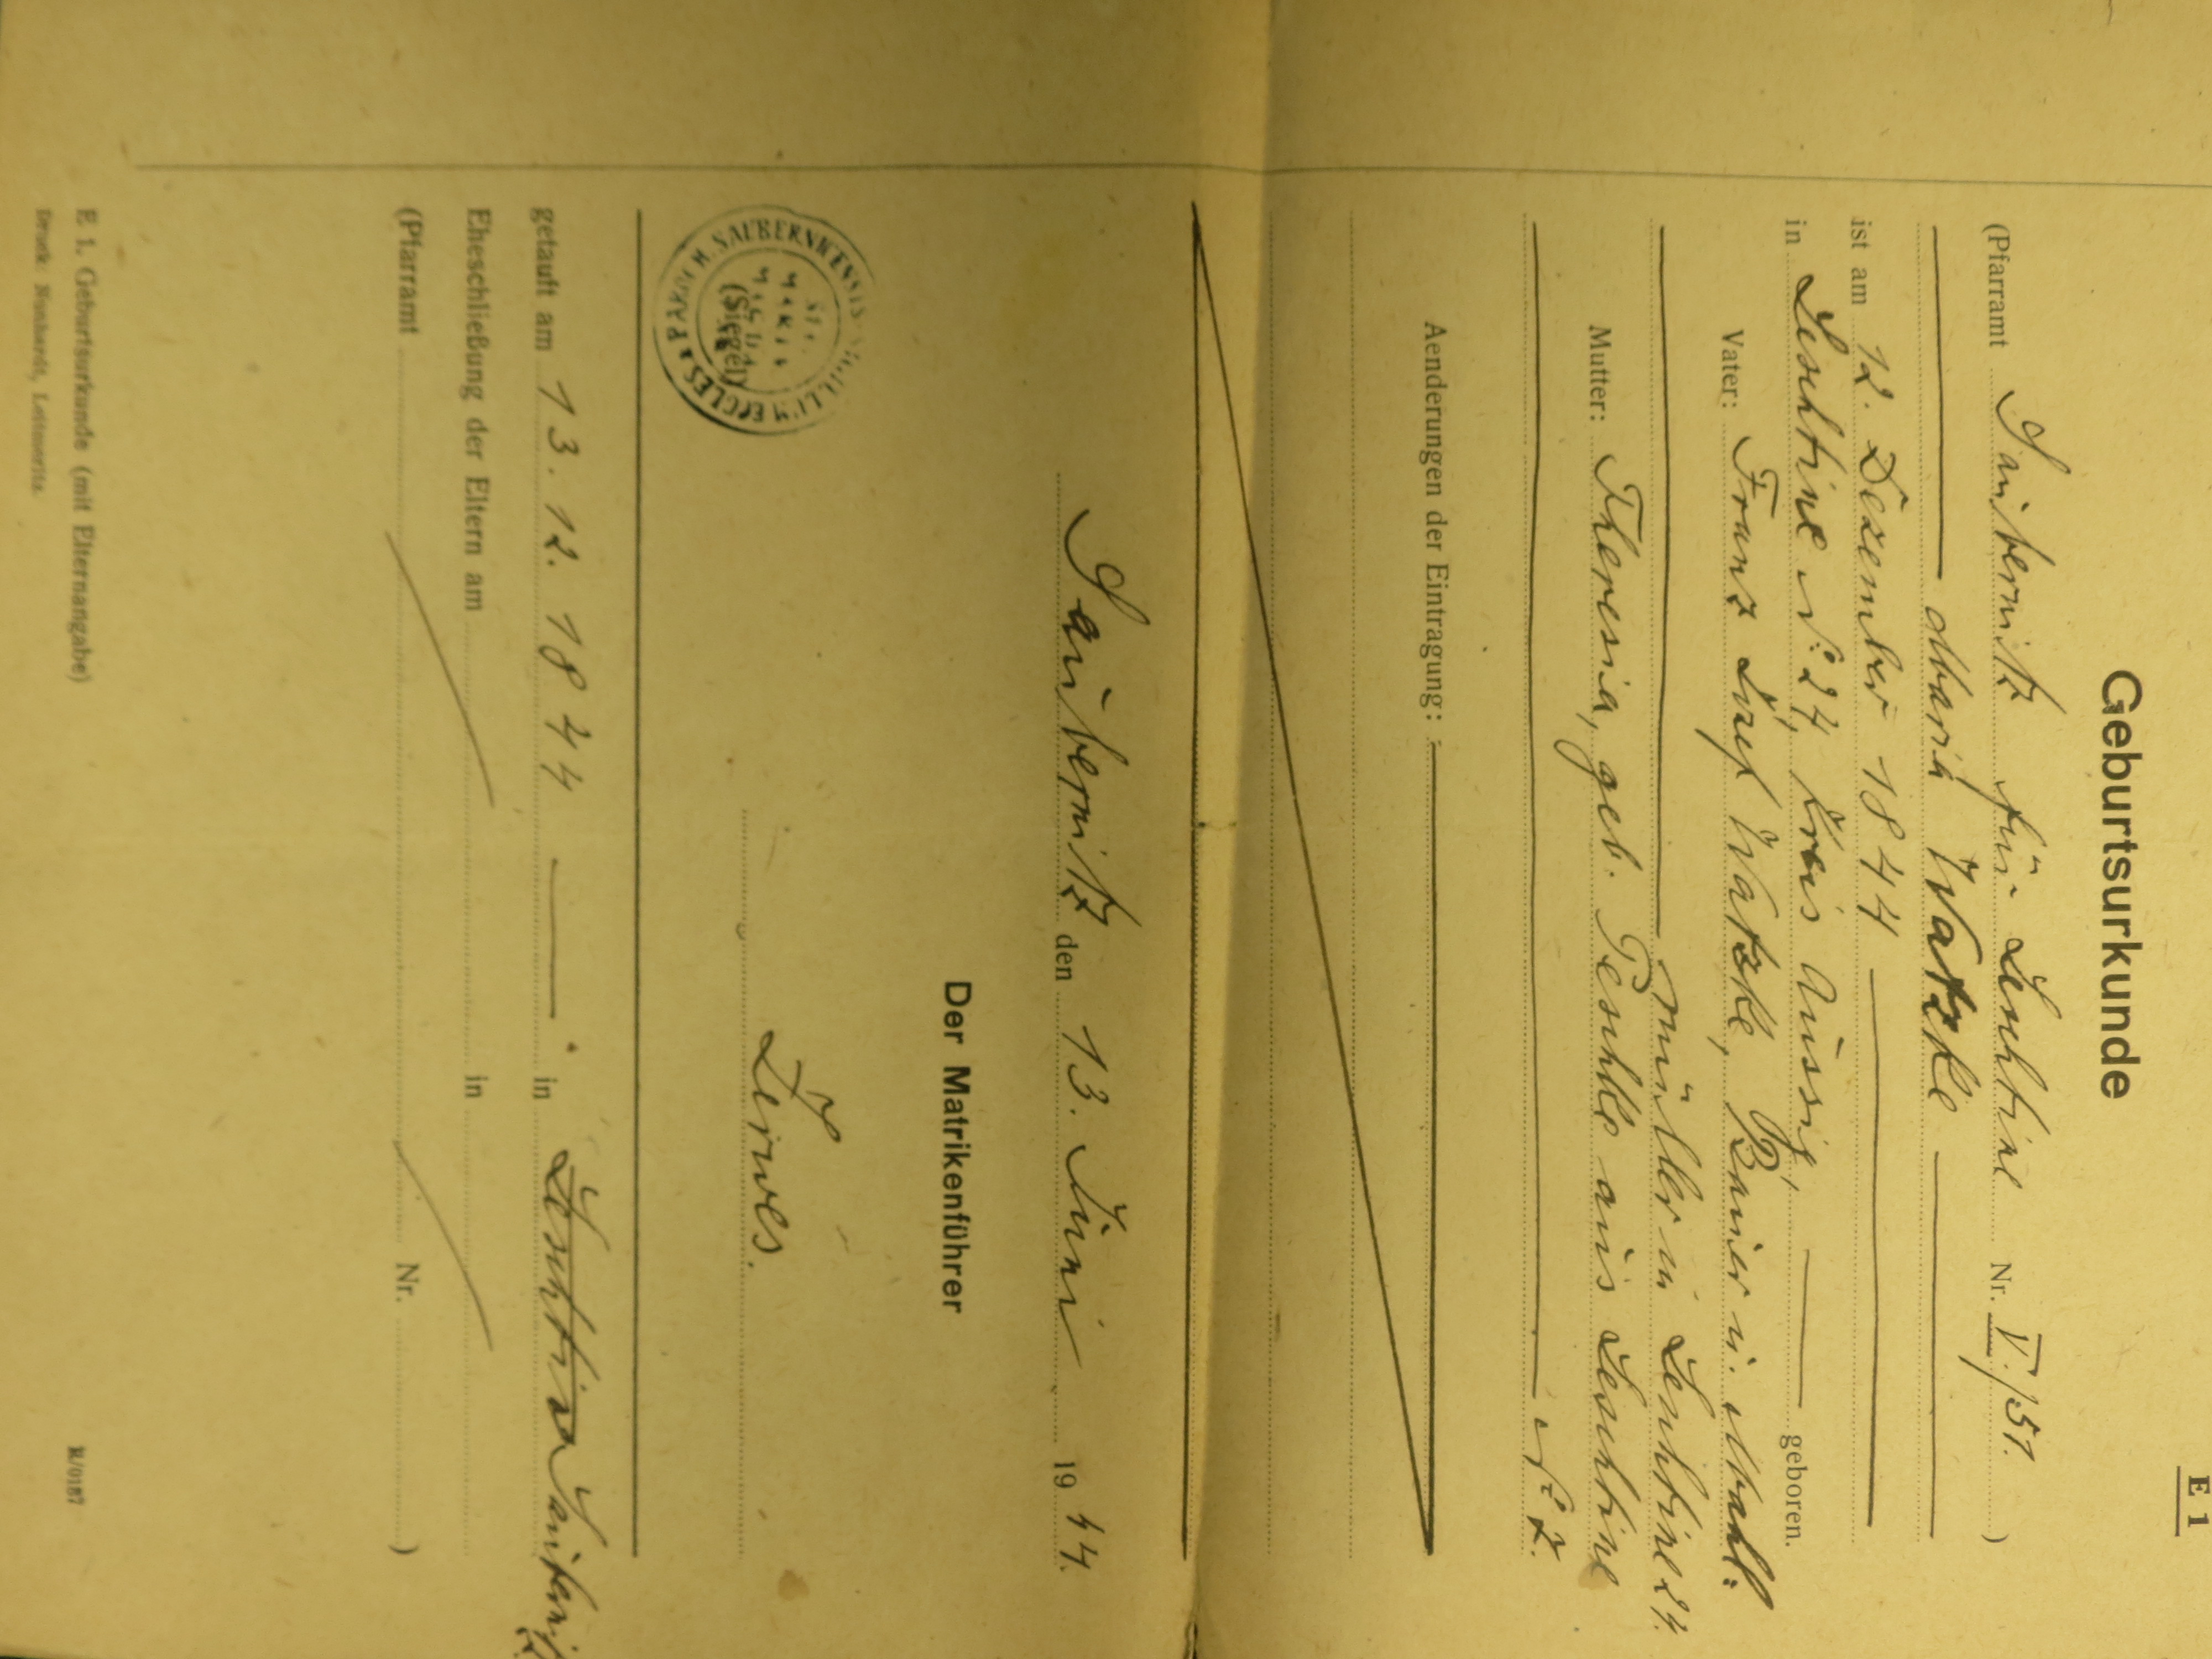 E 1
Geburtsurkunde
(Pfarramt Saubernitz für Leschtine Nr. V./51. )
Maria Watzke
ist am 12. Dezember 1844
in Leschtine No. 24, Kreis Aussig, geboren.
Vater: Franz Josef Watzke, Bauer u. Mahl=
müller in Leschtine 24.
Mutter: Theresia, geb. Peschke aus Leschtine
No. 7.
Aenderungen der Eintragung:
Saubernitz den 13. Juni 1944.
Der Matrikenführer
SIGILLUM ECCLES. & PAROCH. SAUBERNICENSIS
MARIA
MAGDA
(Siegel)
Zerwes.
getauft am 13. 12. 1844 in Leschtine Saubernitz
Eheschließung der Eltern am in
(Pfarramt Nr. )
E 1. Geburtsurkunde (mit Elternangabe)
R/0187
Druck: Nanhardt, Leitmeritz